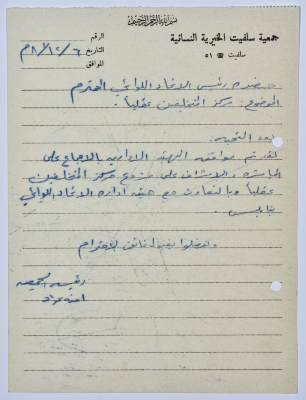 بسم الله الرحمن الرحيم
جمعية سلفيت الخيرية النسائية
سلفيت ☎ ٥١
الرقم
التاريخ ٦/١٢/٨١م
الموافق
حضرة رئيس الاتحاد اللوائي المحترم
الموضوع: مركز المتخلفين عقلياً.
بعد التحية:
لقد تم موافقة الهيئة الادارية بالاجماع على
والاشراف على مشروع مركز المتخلفين
عقلياً وبالتعاون مع هيئة ادارة الاتحاد اللوائي
نابلس.
وتفضلوا بقبول فائق الاحترام
رئيسة الجمعية